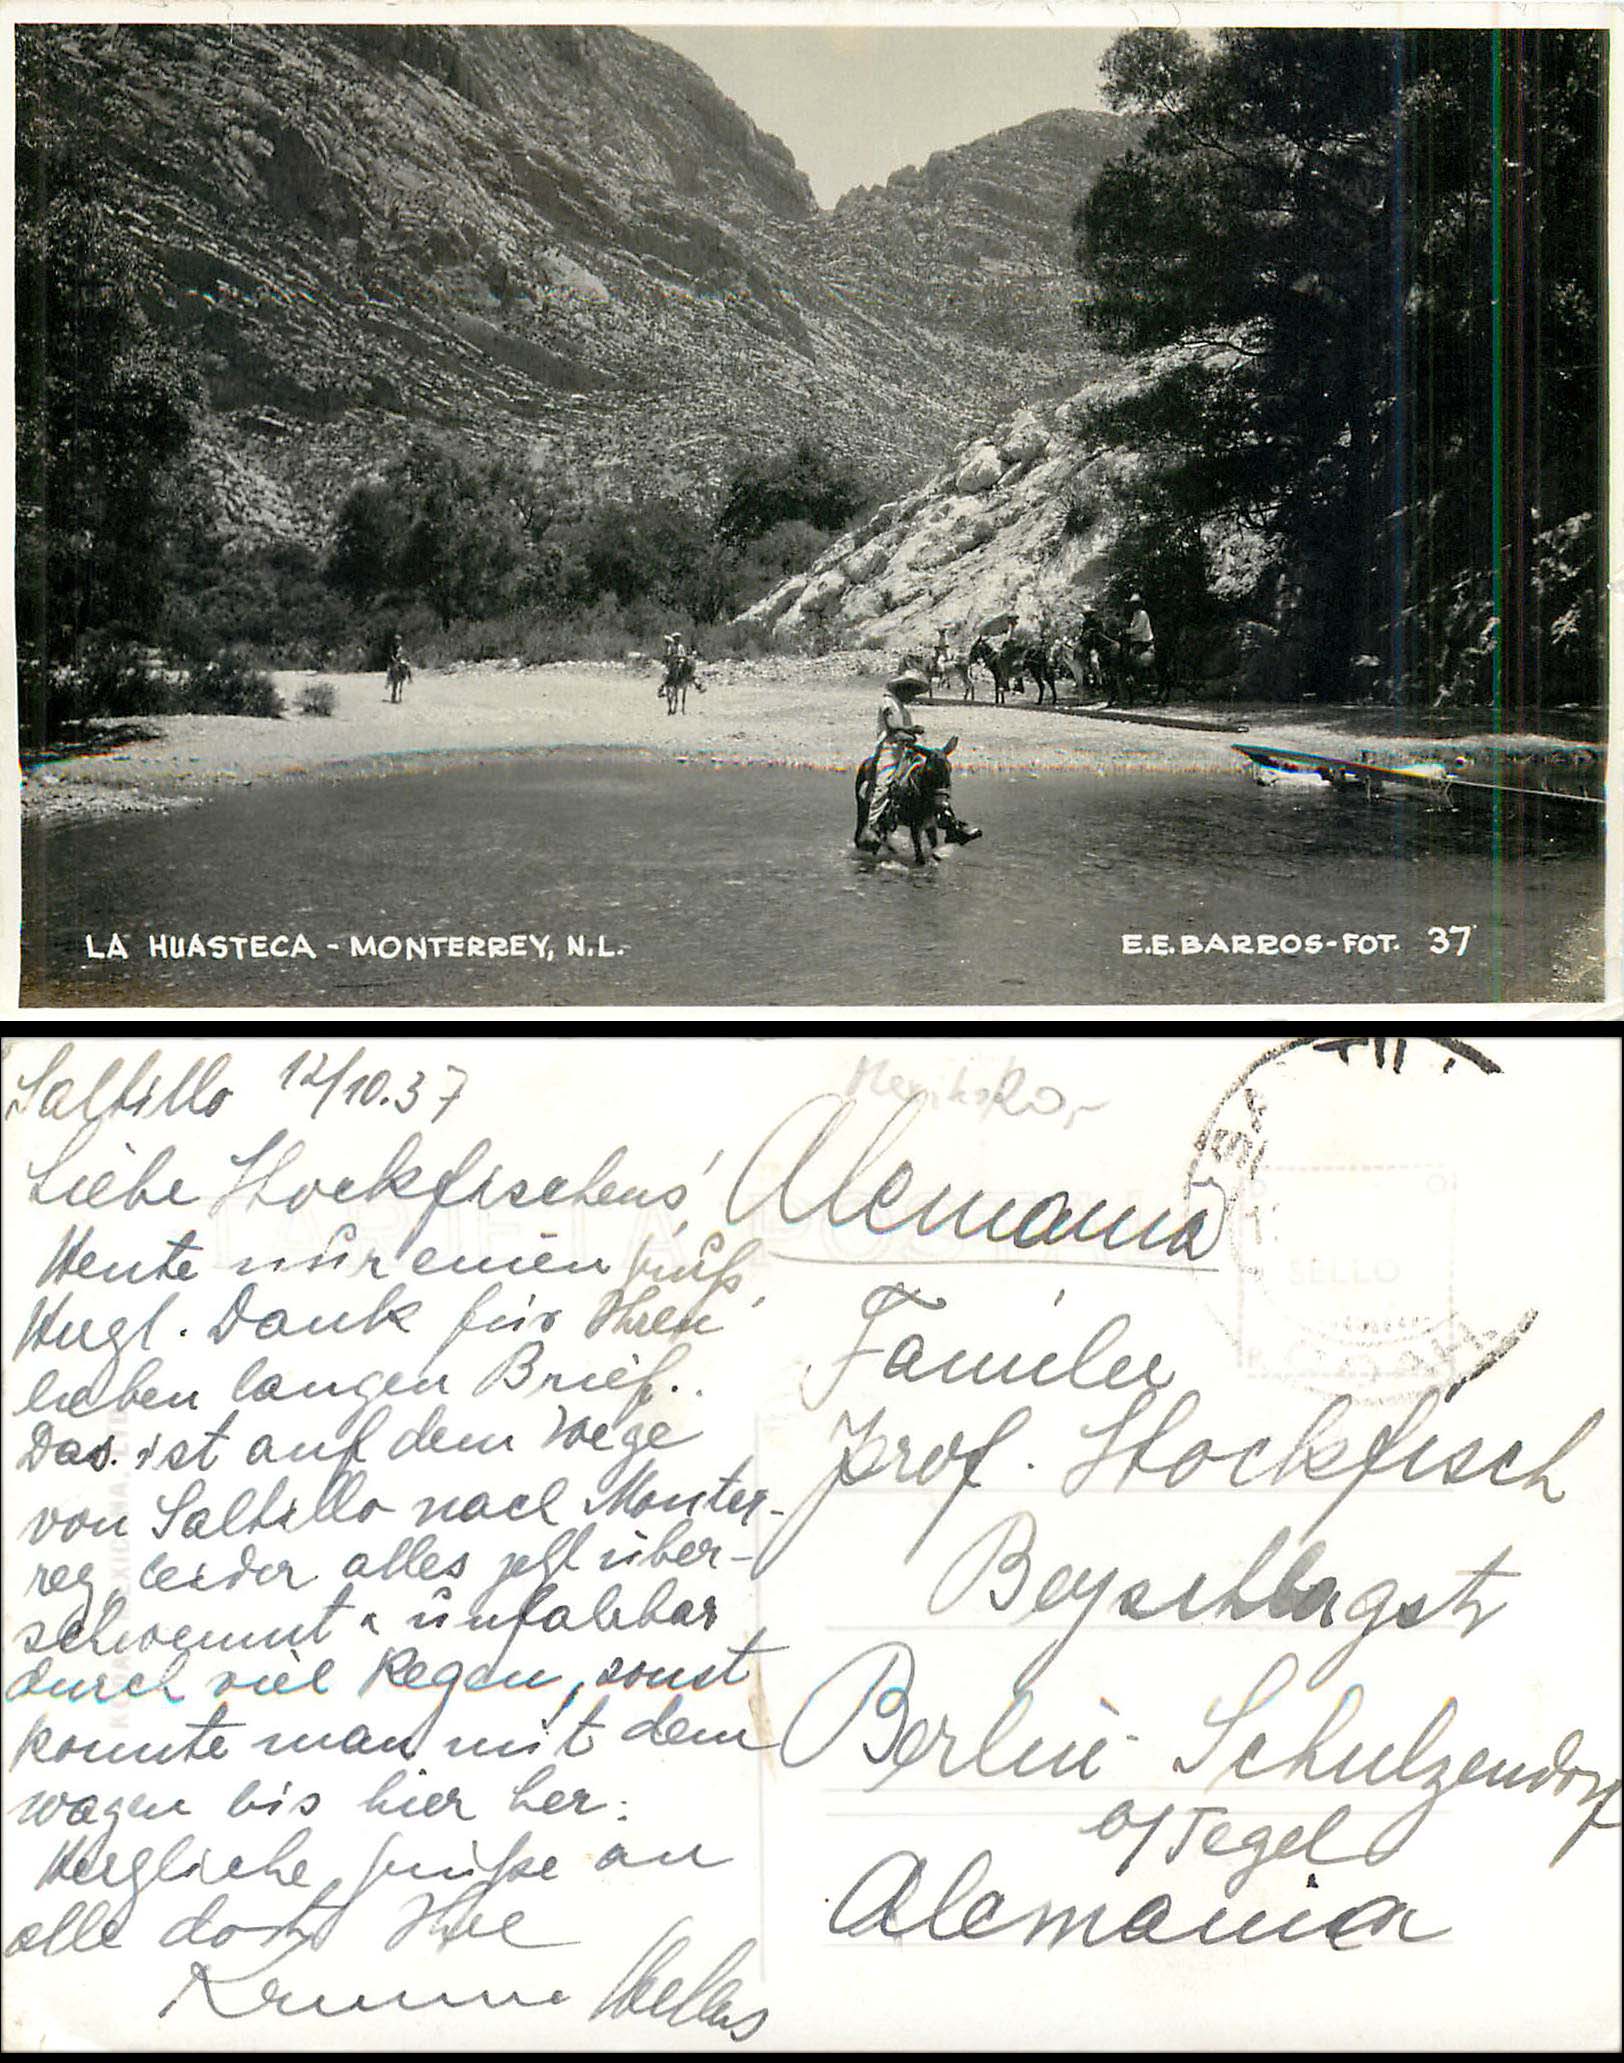 LA HUASTECA - MONTERREY, N.L.
E.E. BARROS-FOT. 37
Saltillo 12/10.37
Liebe Stockfischens!
Heute nur einen Gruß,
Herzl. Dank für Ihren
lieben langen Brief.
Das ist auf dem Wege
von Saltillo nach Monter-
rey, leider alles jetzt über-
schwemmt u unfahrbar
durch viel Regen, sonst
konnte man mit dem
wagen bis hier her.
Herzliche Grüße an
alle dort Ihre
TARJETA POSTAL
SELLO
Alemania
Familie
Prof. Stockfisch
Beyschlagstr
Berlin-Schulzendorf
b/Tegel
Alemania